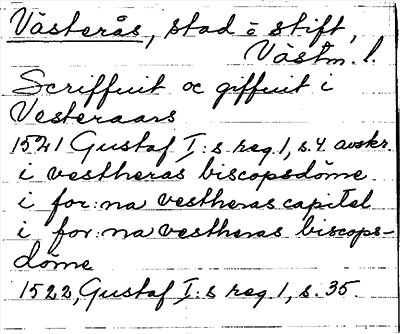 Västerås, stad o stift,
Västm. l.
Scriffuit oc giffuit i
Vesteraars
1521 Gustaf I:s reg 1, s. 4 avskr.
i vestheras biscopsdöme
i for:na vestheras capitel
i for:na vestheras biscops-
döme
1522, Gustaf I:s reg 1, s. 35.